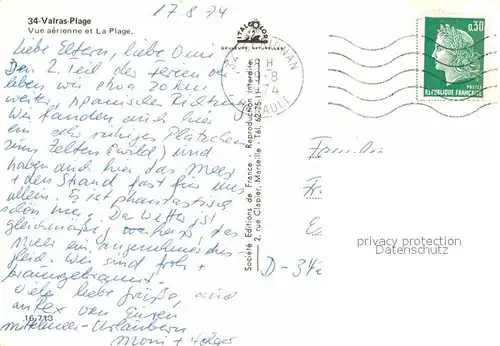 17.8.74
34-Valras-Plage
Vue aérienne et La Plage.
Liebe Eltern, liebe Omi
Den 2. Teil der Ferien
leben wir etwa 20 km
weiter, spanischer Richtung
Wir fanden auch hier
ein sehr ruhiges Plätzchen
zum Zelten (wild) und
haben auch hier das Meer
+ den Strand fast für uns
allein. Es ist phantastisch
schön hier. Das Wetter ist
gleichmäßig heiß, das
Meer ein angenehmes
Wir sind froh +
braungebrannt.
Viele liebe Grüße, und
von Euren
mittelmeer-Urlaubern
Moni + Holger
16.713
ITALCOLOR
COULEURS NATURELLES
Société Editions de France - Reproduction interdite
2, rue Clapier, Marseille - Tél. 62-75-11
34
19-8
HERAULT
0,30
POSTES
REPUBLIQUE FRANÇAISE
Familie
D-34
privacy protection
Datenschutz